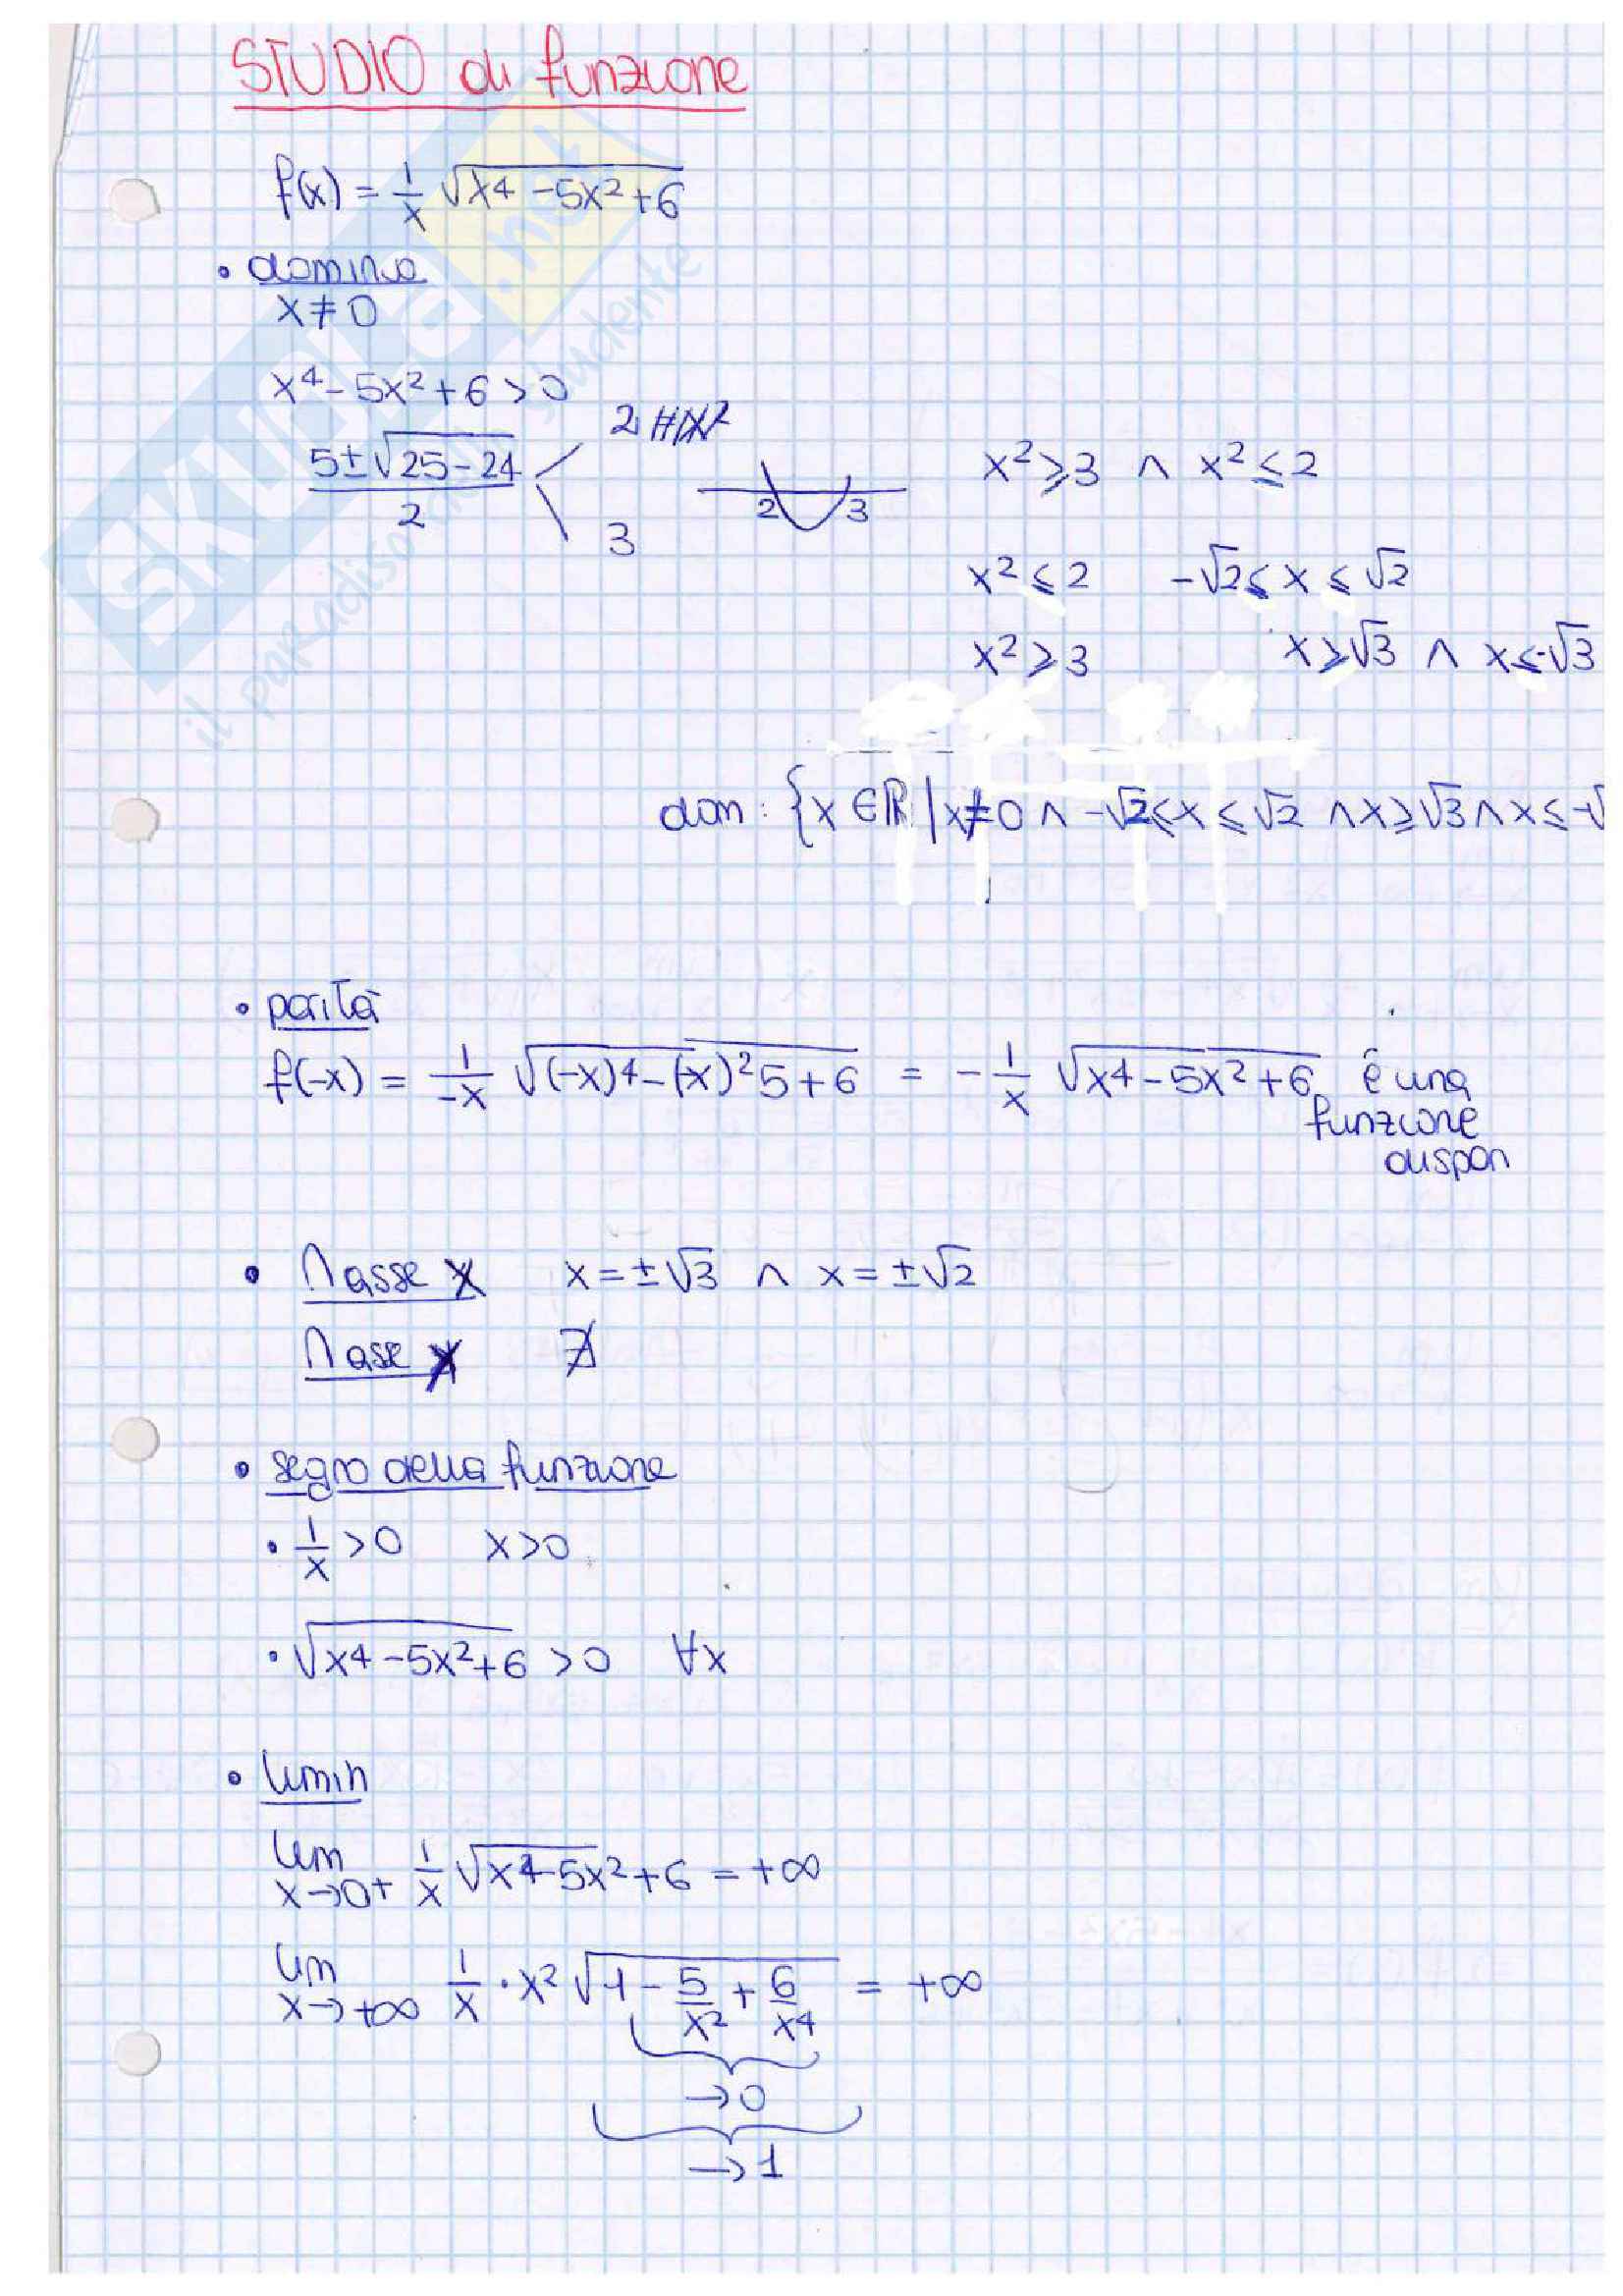 STUDIO di funzione
f(x) = 1/x √(x⁴ - 5x² + 6)
• dominio
x ≠ 0
x⁴ - 5x² + 6 > 0
(5 ± √(25 - 24))/2 2 3
2 3
x² ⩾ 3 ∧ x² ⩽ 2
x² ⩽ 2 -√2 ⩽ x ⩽ √2
x² ⩾ 3 x ⩾ √3 ∧ x ⩽ -√3
dom : {x ∈ ℝ | x ≠ 0 ∧ -√2 ⩽ x ⩽ √2 ∧ x ⩾ √3 ∧ x ⩽ -√
• parità
f(-x) = 1/-x √((-x)⁴ - (-x)²5 + 6) = - 1/x √(x⁴ - 5x² + 6) è una
funzione
dispari
• ∩ asse x x = ±√3 ∧ x = ±√2
∩ asse y ∄
• segno della funzione
• 1/x > 0 x > 0
• √(x⁴ - 5x² + 6) > 0 ∀x
• limiti
lim x→0+ 1/x √(x⁴ - 5x² + 6) = +∞
lim x→+∞ 1/x · x² √(1 - 5/x² + 6/x⁴) = +∞
→ 0
→ 1
SKUOLA.net
il paradiso dello studente